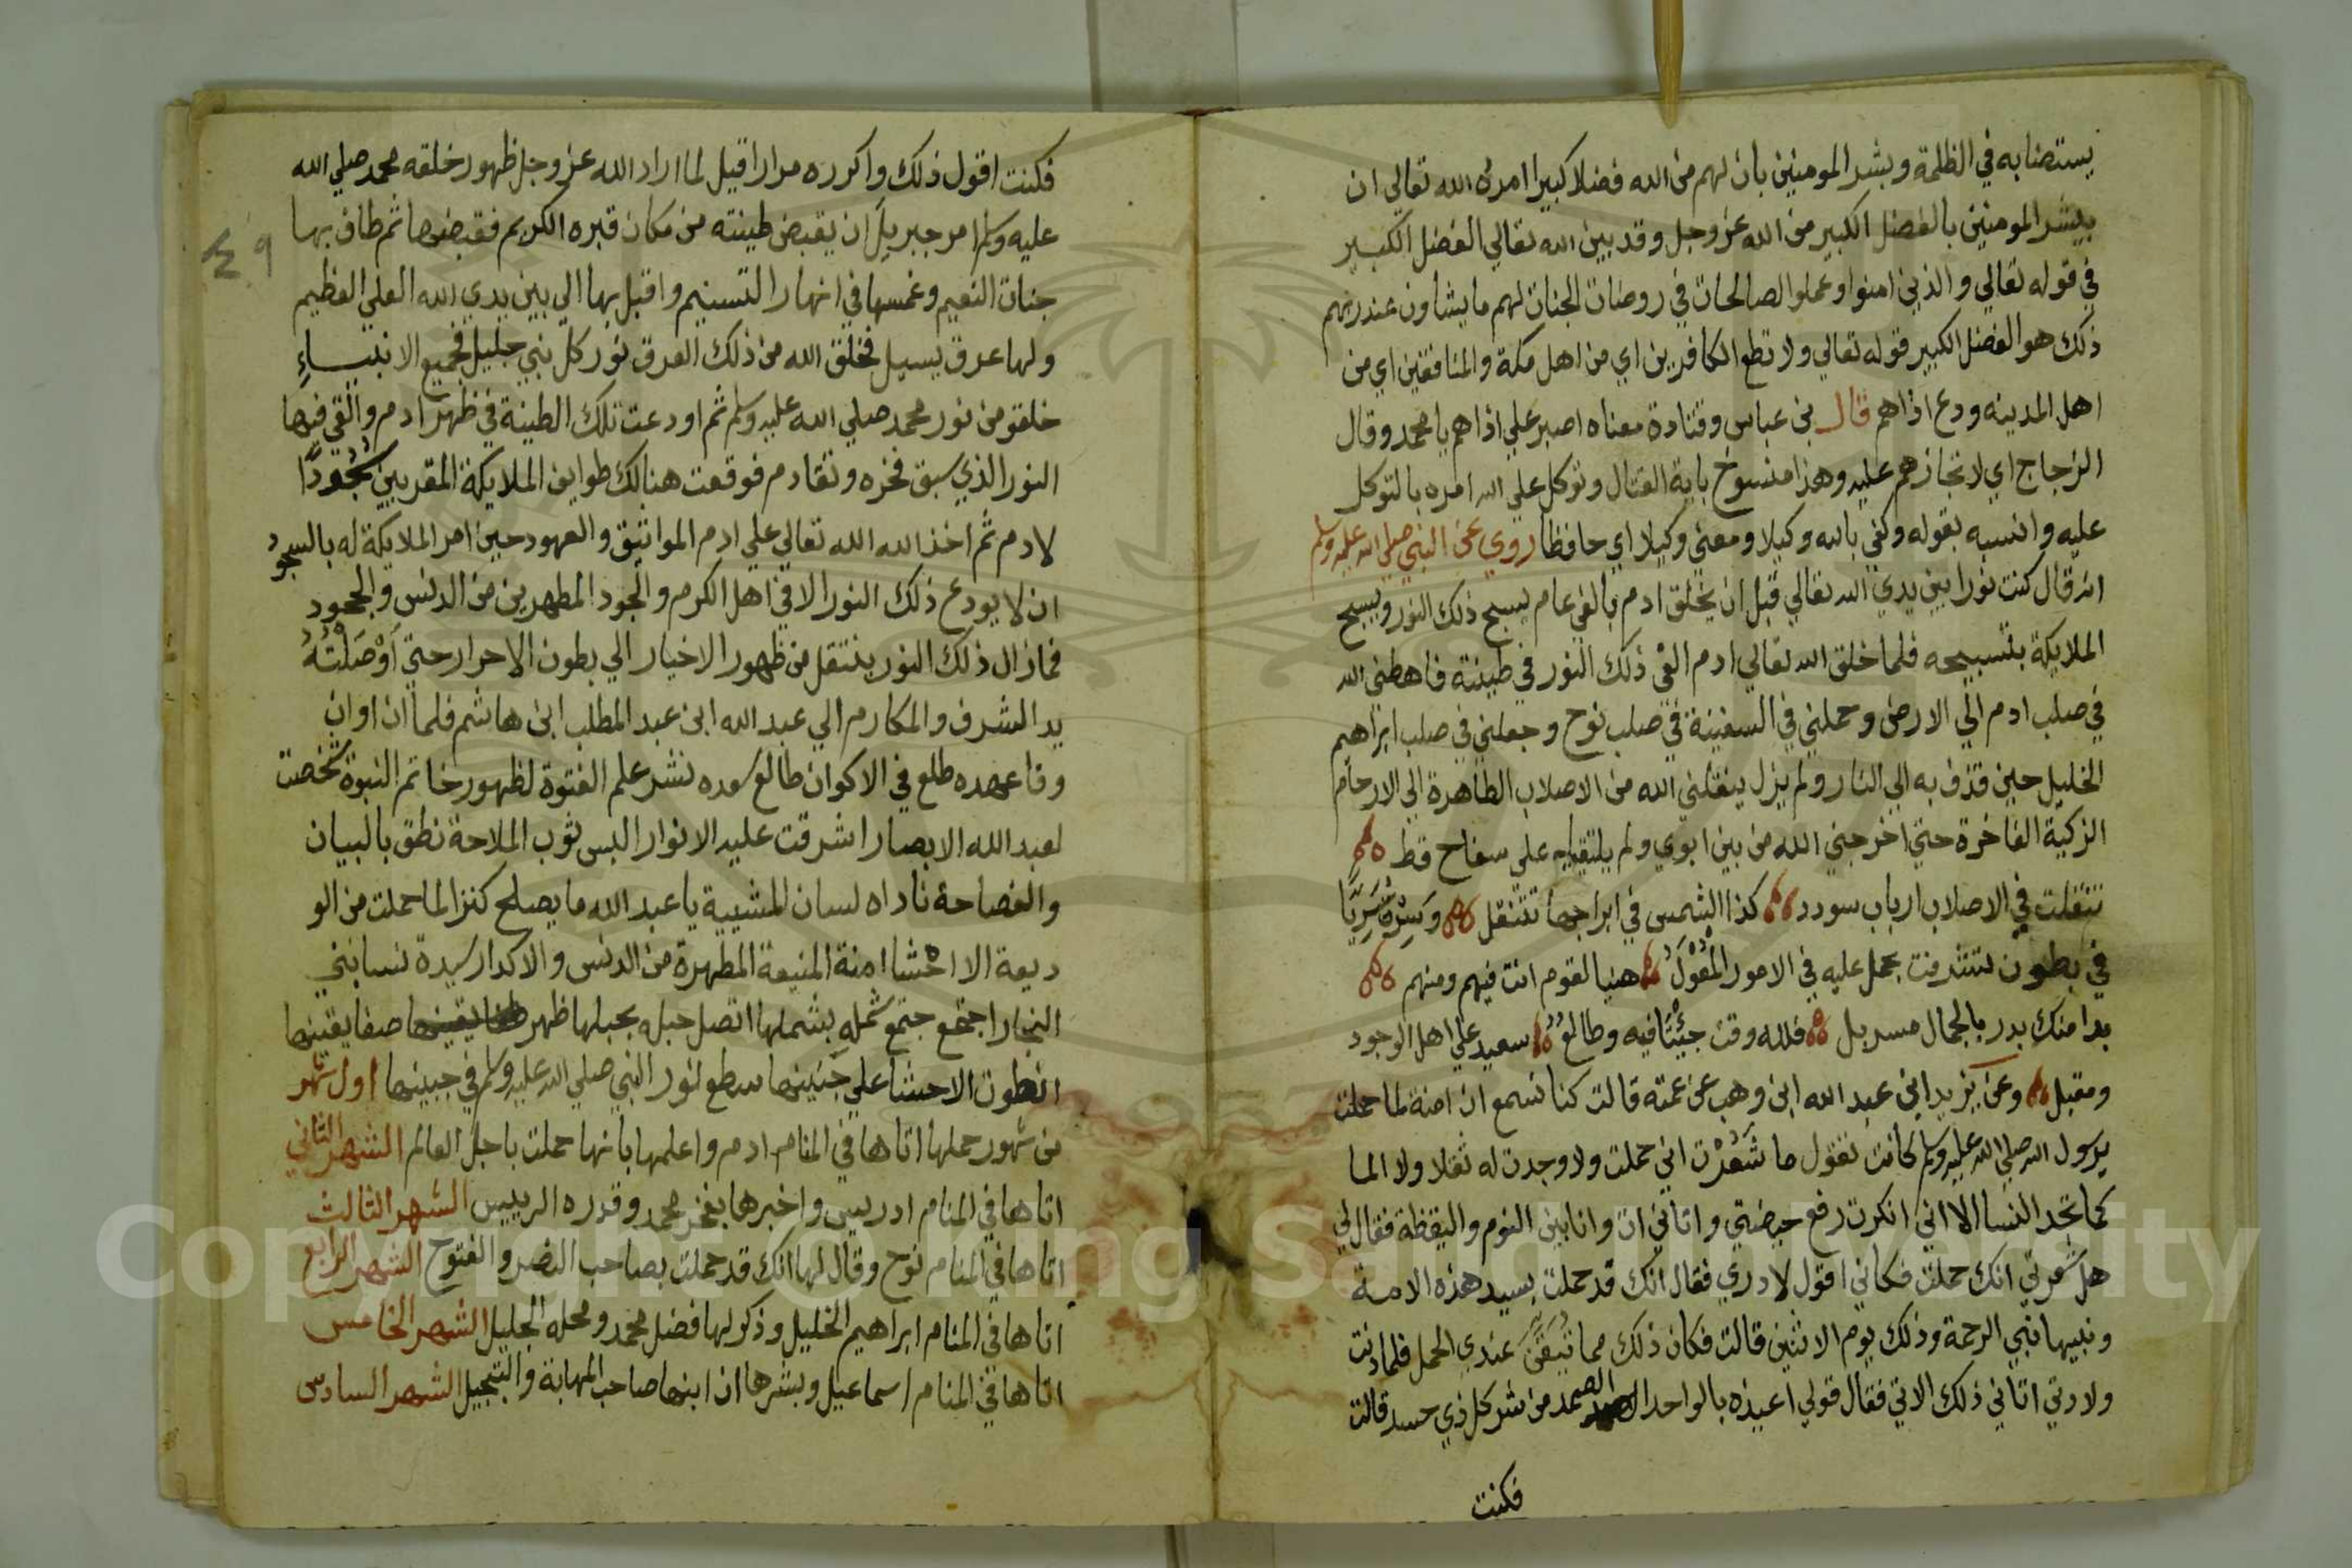 يستضا به في الظلمة وبشر المومنين بان لهم من الله فضلا كبيرا امره الله تعالي ان
يبشر المومنين بالفضل الكبير من الله عز وجل وقد بين الله تعالي الفضل الكبير
في قوله تعالي والذين امنوا وعملوا الصالحات في روضات الجنات لهم ما يشاون عند ربهم
ذلك هو الفضل الكبير قوله تعالي ولا تطع الكافرين اي من اهل مكة والمنافقين اي من
اهل المدينه ودع اذاهم قال بن عباس وقتادة معناه اصبر علي اذاهم يا محمد وقال
الزجاج اي لا تجازهم عليه وهذا منسوخ باية القتال وتوكل علي الله امره بالتوكل
عليه وانسبه بقوله وكفي بالله وكيلا ومعني وكيلا اي حافظا روي عن النبي صلي الله عليه وسلم
انه قال كنت نورا بين يدي الله تعالي قبل ان يخلق ادم بالفي عام يسبح ذلك النور ويسبح
الملايكة بتسبيحه فلما خلق الله تعالي ادم القي ذلك النور في طينته فاهبطني الله
في صلب ادم الي الارض وحملني في السفينة في صلب نوح وجعلني في صلب ابراهيم
الخليل حين قذف به الي النار ولم يزل ينقلني الله من الاصلاب الطاهرة الي الارحام
الزكية الفاخرة حتي اخرجني الله من بين ابوي ولم يلتقيا علي سفاح قط
تنقلت في الاصلاب ارباب سودد كذا الشمس في ابراجها تتنقل وسرت سريا
في بطون تشرفت بحمل عليه في الامور المعول هنيا لقوم انت فيهم ومنهم
بدا منك بدر بالجمال مسربل فلله وقت جيئتا فيه وطالع سعيد علي اهل الوجود
ومقبل وعن يزيد ابن عبد الله ابن وهب عن عمته قالت كنا نسمع ان امنة لما حملت
برسول الله صلي الله عليه وسلم كانت تقول ما شعرت اني حملت ولا وجدت له ثقلا ولا الما
كما تجد النسا الا اني انكرت رفع حيضتي واتاني ات وانا بين النوم واليقظة فقال لي
هل شعرتي انك حملت فكاني اقول لا دري فقال انك قد حملت بسيد هذه الامة
ونبيها نبي الرحمة وذلك يوم الاثنين قالت فكان ذلك مما تيقن عندي الحمل فلما دنت
ولادتي اتاني ذلك الاتي فقال قولي اعيذه بالواحد الصمد من شر كل ذي حسد قالت
فكنت
٤٩
فكنت اقول ذلك واكرره مرارا قيل لما اراد الله عز وجل ظهور خلقه محمد صلي الله
عليه وسلم امر جبريل ان يقبض طينته من مكان قبره الكريم فقبضها ثم طاف بها
جنات النعيم وغمسها في انهار التسنيم واقبل بها الي بين يدي الله العلي العظيم
ولها عرق يسيل فخلق الله من ذلك العرق نور كل نبي جليل فجميع الانبياء
خلقو من نور محمد صلي الله عليه وسلم ثم اودعت تلك الطينة في ظهر ادم والقي فيها
النور الذي سبق فخره وتقادم فوقعت هنالك طوايف الملايكة المقربين سجودا
لادم ثم اخذ الله الله تعالي علي ادم المواثيق والعهود حين امر الملايكة له بالسجود
ان لا يودع ذلك النور الا في اهل الكرم والجود المطهرين من الدنس والجحود
فما زال ذلك النور ينتقل من ظهور الاخيار الي بطون الاحرار حتي اوصلته
يد الشرف والمكارم الي عبد الله ابن عبد المطلب ابن هاشم فلما ان اوان
وفا عهده طلع في الاكوان طالع سعده نشر علم الفتوة لظهور خاتم النبوة شخصت
لعبد الله الابصار اشرقت عليه الانوار البس ثوب الملاحة نطق بالبيان
والفصاحة ناداه لسان المشيية يا عبد الله ما يصلح كنزا لما حملت من الو
ديعة الا احشا امنة المنيعة المطهرة من الدنس والاكدار سيدة نسا بني
النجار اجتمع جتمع شمله بشملها اتصل حبله بحبلها ظهر صفا يقينها
انطوت الاحشا علي جنينها سطع لنور النبي صلي الله عليه وسلم في جبينها اول شهر
من شهور حملها اتاها في المنام ادم واعلمها بانها حملت باجل العالم الشهر الثاني
اتاها في المنام ادريس واخبرها بفخر محمد وقدره الرييس الشهر الثالث
اتاها في المنام نوح وقال لها انك قد حملت بصاحب النصر والفتوح الشهر الرابع
اتاها في المنام ابراهيم الخليل وذكر لها فضل محمد ومحله الجليل الشهر الخامس
اتاها في المنام اسماعيل وبشرها ان ابنها صاحب المهابة والتبجيل الشهر السادس
Copyright © King Saud University